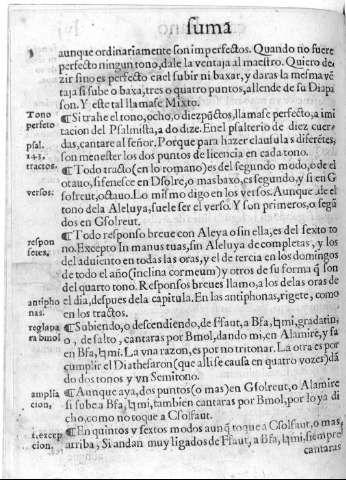 suma
aunque ordinariamente son imperfectos. Quando no fuere
perfecto ningun tono, dale la ventaja al maestro. Quiero de-
zir sino es perfecto en el subir ni baxar, y daras la mesma vẽ
taja si sube o baxa, tres o quatro puntos, allende de su Diapa
son. Y este tal llamase Mixto.
Tono
perfeto
¶Si trahe el tono, ocho, o diez pũctos, llamase perfecto, a imi
tacion del Psalmista, a do dize. En el psalterio de diez cuer-
psal.
143.
das, cantare al señor. Porque para hazer clausulas diferẽtes,
son menester los dos puntos de licencia en cada tono.
tractos.
¶Todo tracto (en lo romano) es del segundo modo, o de el
otauo, si fenesce en Dsolre, o mas baxo, es segundo, y si en G
versos.
solreut, octauo. Lo mismo digo en los versos. Aunque de el
tono dela Aleluya, suele ser el verso. Y son primeros, o segũ
dos en Gsolreut.
respon
¶Todo responso breue con Aleya o sin ella, es del sexto to
no. Excepto In manus tuas, sin Aleluya de completas, y los
del aduiento en todas las oras, y el de tercia en los domingos
de todo el año (inclina cor meum) y otros de su forma q̃ son
del quarto tono. Responsos breues llamo, a los delas oras de
antipho
nas.
el dia, despues dela capitula. En las antiphonas, rigete, como
en los tractos.
regla pa
ra bmol
¶Subiendo, o descendiendo, de Ffaut, a Bfa, ♮mi, gradatin
o, de salto, cantaras por Bmol, dando mi, en Alamire, y fa
en Bfa, ♮mi. La vna razon, es por no tritonar. La otra es por
cumplir el Diathesaron (que alli se causa en quatro vozes) dã
do dos tonos y vn Semitono.
amplia
cion.
¶Aunque aya, dos puntos (o mas) en Gsolreut, o Alamire
si sube a Bfa, ♮mi, tambien cantaras por Bmol, por lo ya di
cho, como no toque a Csolfaut.
1. excep
cion.
¶En quintos y sextos modos aunq̃ toque a Csolfaut, o mas
arriba, Si andan muy ligados de Ffaut, a Bfa, ♮mi, siempre
cantaras